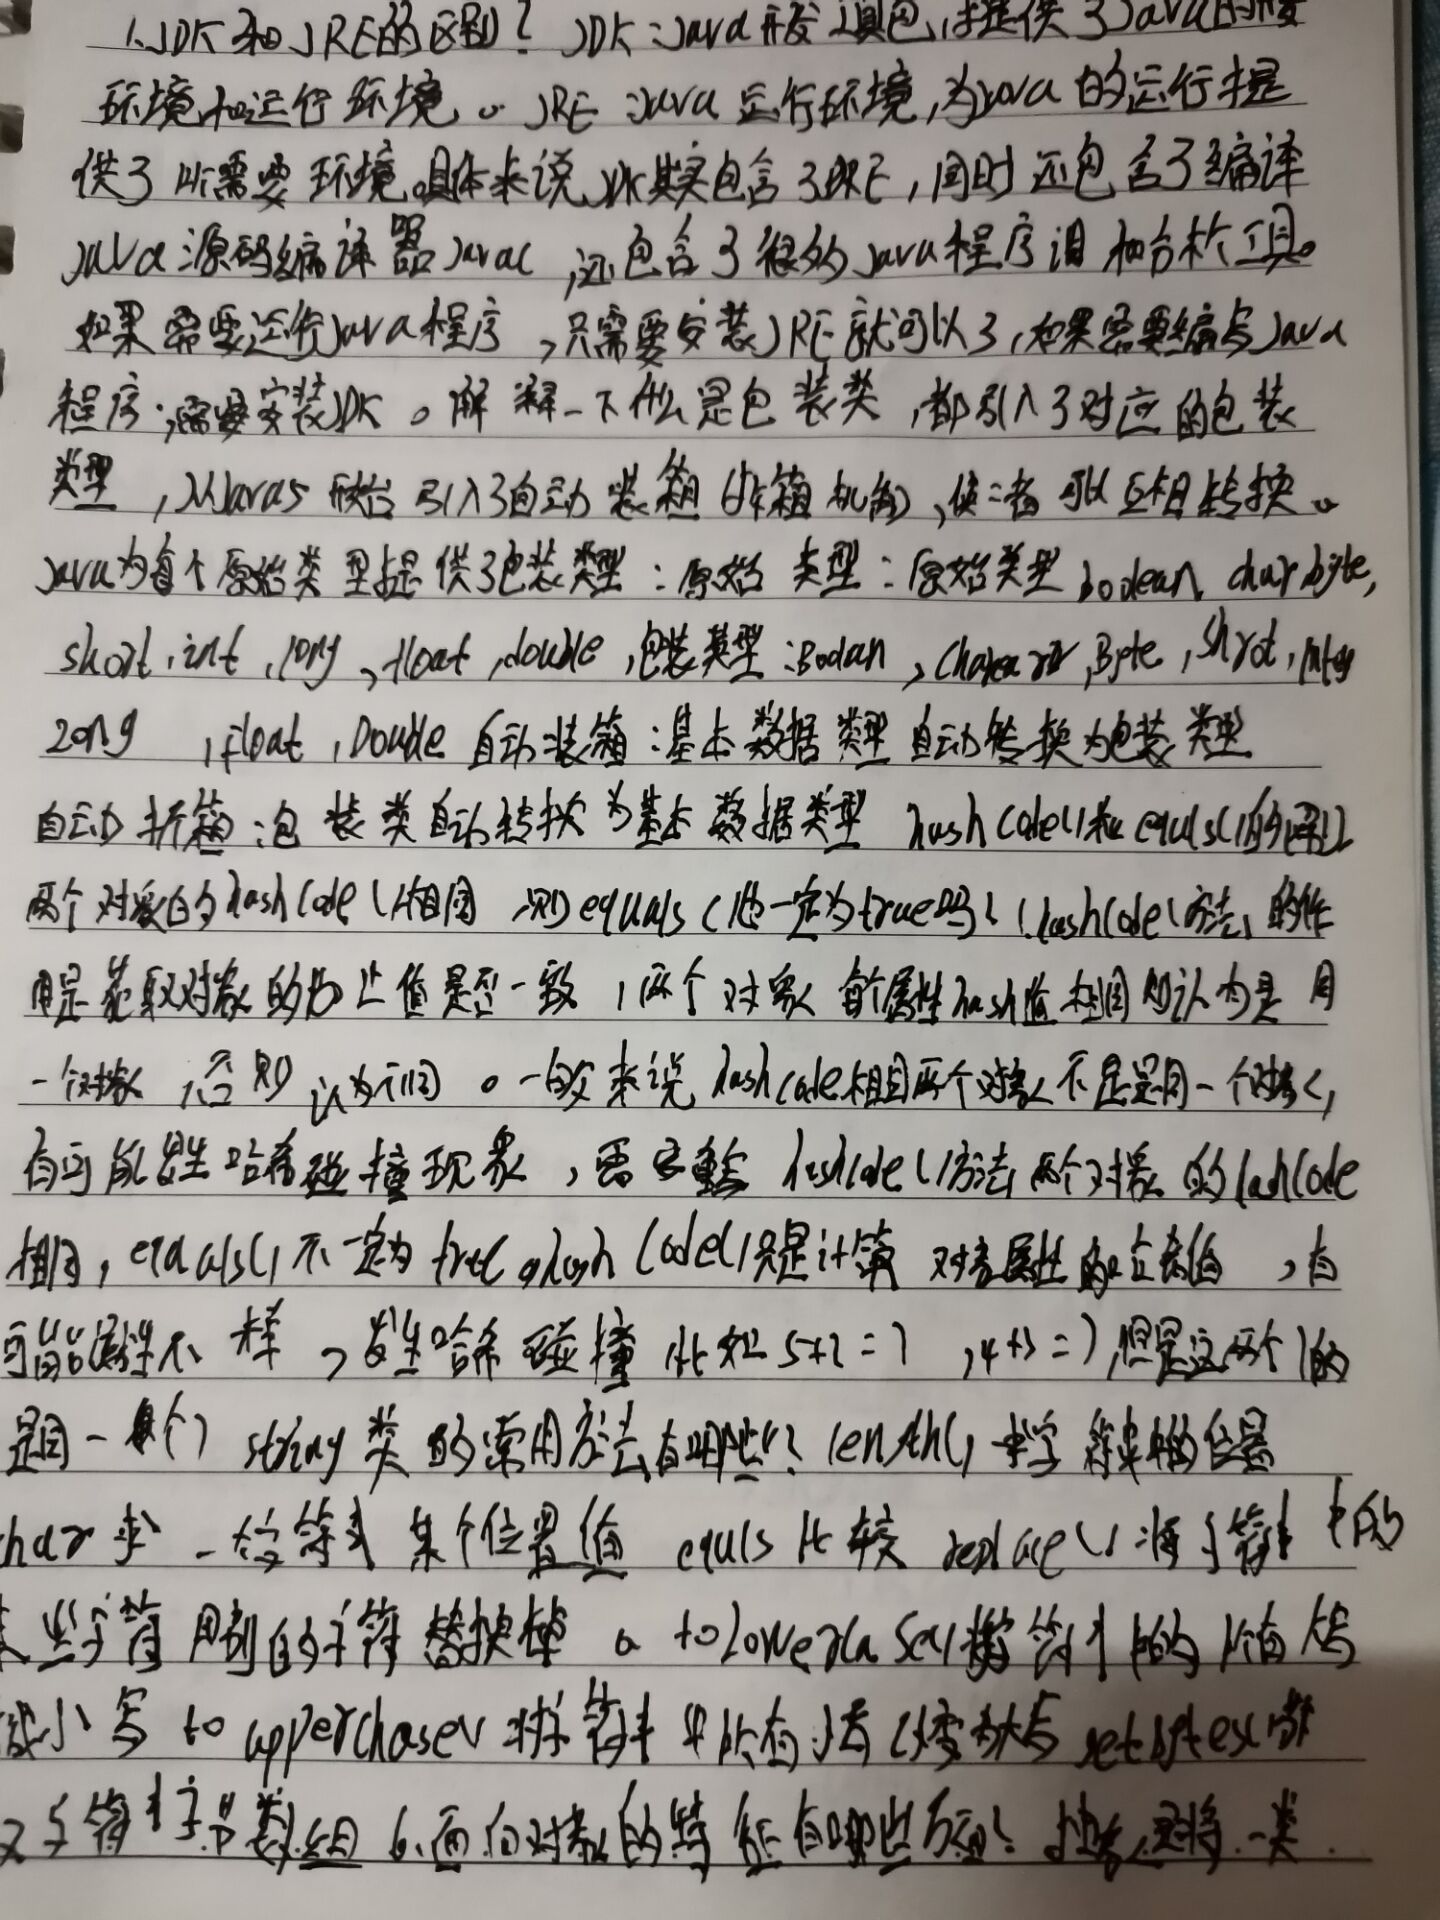 1.JDK和JRE的区别? JDK:Java开发工具包,提供了Java的开发
环境和运行环境。JRE:Java运行环境,为Java的运行提
供了所需要环境。具体来说JDK其实包含了JRE,同时还包含了编译
Java源码编译器Javac,还包含了很多Java程序调和台析工具。
如果需要运行Java程序,只需要安装JRE就可以了,如果需要编写Java
程序,需要安装JDK。解释一下什么是包装类,都引入了对应的包装
类型,从Java5开始引入了自动装箱/拆箱机制,使二者可以互相转换。
Java为每个原始类型提供了包装类型:原始类型:原始类型boolean,char,byte,
short,int,long,float,double,包装类型:Boolean,Character,Byte,Shrot,Integer
Long,Float,Double自动装箱:基本数据类型自动转换为包装类型
自动拆箱:包装类自动转换为基本数据类型 hashCode()和equals()的
两个对象的hashCode()相同,则equals()也一定为true吗?hashCode()方法的作
用是获取对象的 值是否一致,两个对象每个属性hash值相同则认为是同
一个对象,否则认为不同。一般来说hashCode相同两个对象不是同一个对象,
有可能发生哈希碰撞现象,需要重写hashCode()方法两个对象的hashCode
相同,equals()不一定为true。hashCode()只是计算对象属性的哈希值,有
可能属性不一样,发生哈希碰撞比如5+2=7,4+3=7,但是这两个7的
是同一个7 string类的常用方法有哪些?length() 字符串的位置
char求一 字符串某个位置值 equls比较 replace()将字符串中的
某些字符用别的字符替换掉。toLowercase()将字符串中的所有大写
成小写 to upperchase()将字符串中所有小写 变为大写getbytes()
字符串字节数组 6.面向对象的特征有哪些方面? 抽象:是将一类